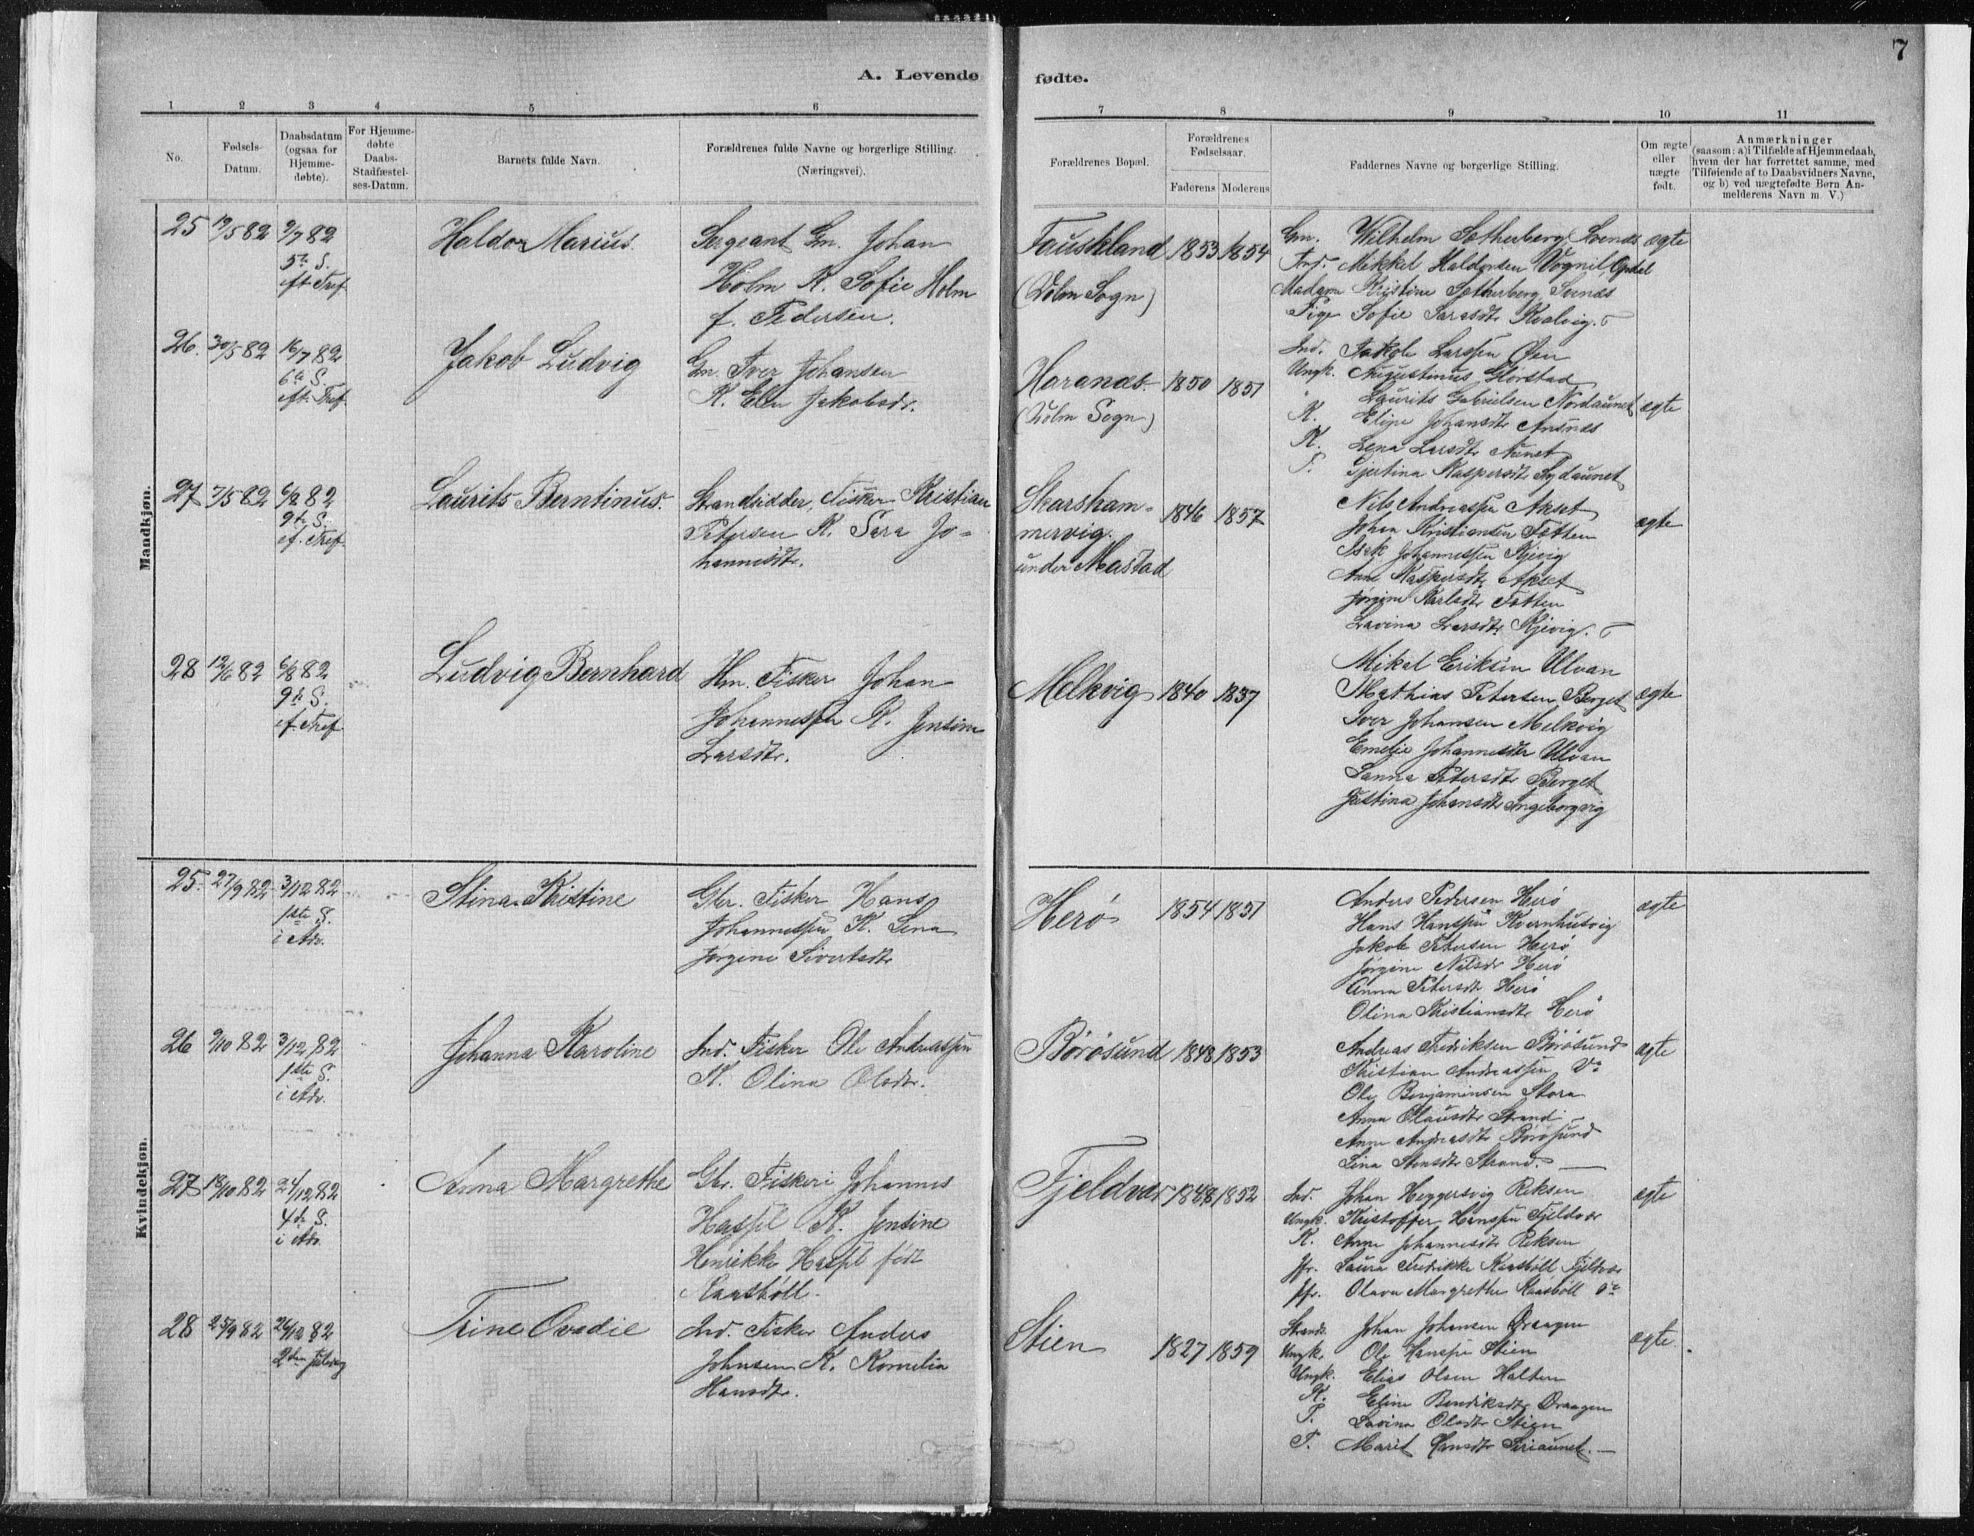 7
A. Levende fødte.
1 2 3 4 5 6 7 8 9 10 11
No.
Fødsels-Datum.
Daabsdatum (ogsaa for Hjemme-døbte).
For Hjemme-døbte Daabs-Stadfæstel-ses-Datum.
Barnets fulde Navn.
Forældrenes fulde Navne og borgerlige Stilling.
(Næringsvei).
Forældrenes Bopæl.
Forældrenes Fødselsaar.
Faderens Moderens
Faddernes Navne og borgerlige Stilling.
Om ægte eller uægte født.
Anmærkninger
(saasom: a) i Tilfælde af Hjemmedaab,
hvem der har forrettet samme, med
Tilføiende af to Daabsvidners Navne,
og b) ved uægtefødte Børn An-
melderens Navn m. V.)
Mandkjøn.
25 19/5 82 9/7 82
5te S.
eft. Tref
Haldor Marius
Sergeant Gm. Johan
Holm K. Sofie Holm
f. Pedersen.
Fauskland
(Hölm Sogn)
1853 1854
Gm. Wilhelm Sætherberg Svenæs
Ind. Mikkel Haldorsen Vognil Opdal
Madam Kristine Sætherberg Svenæs
Pige Sofie Larsdtr Kvalvig.
ægte
26. 30/5 82 16/7 82
6te S.
eft. Tref.
Jakob Ludvig
Gm. Iver Johansen
K. Elen Jakobsdr.
Haranæs
(Hölm Sogn)
1850 1851
Ind. Jakob Larssen Øien
Ungk. Augustinus Hörstad
" Laurits Gabrielsen Nordaunet
K. Eline Johansdtr Ansnæs
K. Lena Larsdtr Aunet
P. Gjertina Kaspersdtr Sydaunet
ægte
27 7/5 82 6/8 82
9de S.
ef. Tref.
Laurits Berntinus.
Strandsidder, Fisker Kristian
Petersen K. Sara Jo-
hannesdtr.
Skarsham-
mervig.
under Mastad
1846 1857
Nils Andreassen Akset
Johan Kristiansen Fætten
Isak Johannessen Kjevig
Ane Kaspersdtr Akset
Jørgine Karlsdtr Fætten
Lavina Larsdtr Kjevig.
ægte
28 12/6 82 6/8 82
9de S.
ef. Tref
Ludvig Bernhard
Hm. Fisker Johan
Johannessen K. Jensine
Larsdtr.
Melkvig
1840 1837
Mikal Eriksen Ulvan
Mathias Petersen Berget
Iver Johansen Melkvig
Emelie Johannesdtr Ulvan
Sanna Petersdtr Berget
Justina Johansdtr Ingeborgvig
ægte
Kvindekjøn.
25. 27/9 82 3/12 82
1ste S.
i Adv.
Stina Kristine
Gbr. Fisker Hans
Johannessen K. Lena
Jørgine Sivertsdtr
Herø
1854 1851
Anders Pedersen Herø
Hans Hanssen Kvernhusvig
Jakob Petersen Herø
Jørgine Nilsdr Herø
Anna Petersdtr Herø
Olina Kristiansdtr Herø
ægte
26 9/10 82 3/12 82
1ste S.
i Adv.
Johanna Karoline
Ind. Fisker Ole Andreassen
K. Olina Olsdtr.
Börösund
1848 1853
Andreas Fredriksen Börösund
Kristian Andreassen Do
Ole Benjaminsen Storø
Anna Olausdtr Strand
Anne Andreasdtr Börösund
Lina Stensdtr Strand.
ægte
27 18/10 82 24/12 82
4de S.
i Adv.
Anna Margrethe
Gbr. Fiskeri Johannes
Haspel K. Jensine
Henrikke Haspel født
Kaasböll.
Fjeldvær
1848 1852
Ind. Johan Heggersvig Reksen
Ungk. Kristoffer Hanssen Fjeldvær
K. Anne Johannesdtr Reksen
Jfr. Laura Fredrikke Kaasböll Fjeldvær
Jfr. Olava Margrethe Kaasböll do
ægte
28 25/9 82 26/12 82
2den Juledag
Trine Ovedie
Ind. Fisker Anders
Johnsen K. Kornelia
Hansdtr.
Stien
1827 1859
Strands. Johan Johansen Draagen
Ungk. Ole Hanssen Stien
Ungk. Elias Olsen Halten
K. Eline Bendiksdtr Draagen
P. Lavina Olsdtr Stien
P. Marit Arnsdtr Siriaunet.
ægte